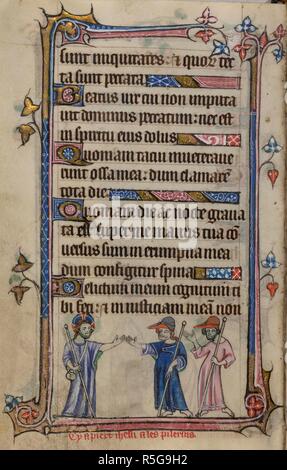 sunt iniquitates: et quor tec
ta sunt peccata
Beatus vir cui non imputa
vit dominus peccatum: nec est
in spiritu eius dolus
Quoniam tacui inveterave
runt ossa mea: dum clamarem
tota die
Quoniam die ac nocte grava
ta est super me manus tua con
versus sum in erumpna mea
dum configitur spina
Delictum meum cognitum ti
bi feci: et iniusticiam meam non
Cy apiert ihesu a les pilerins
alamy
Image ID: R5G9H2
www.alamy.com